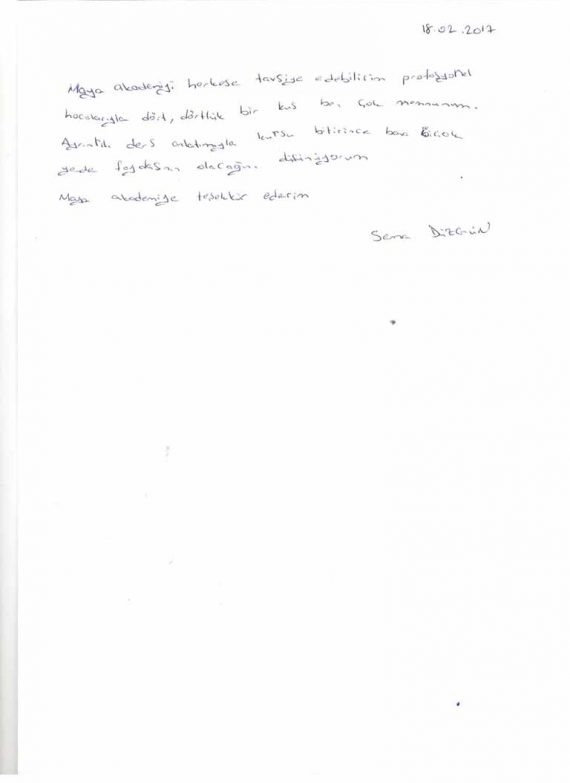 18.02.2017
Maya akademiyi herkese tavsiye edebilirim profosyonel
hocalarıyla dört, dörtlük bir kus ben çok memnunum.
Ayrıntılı ders anlatımıyla kursu bitirince bana birçok
yerde faydasını olacağını düşünüyorum
Maya akademiye teşekkür ederim
Sema DÜZGÜN